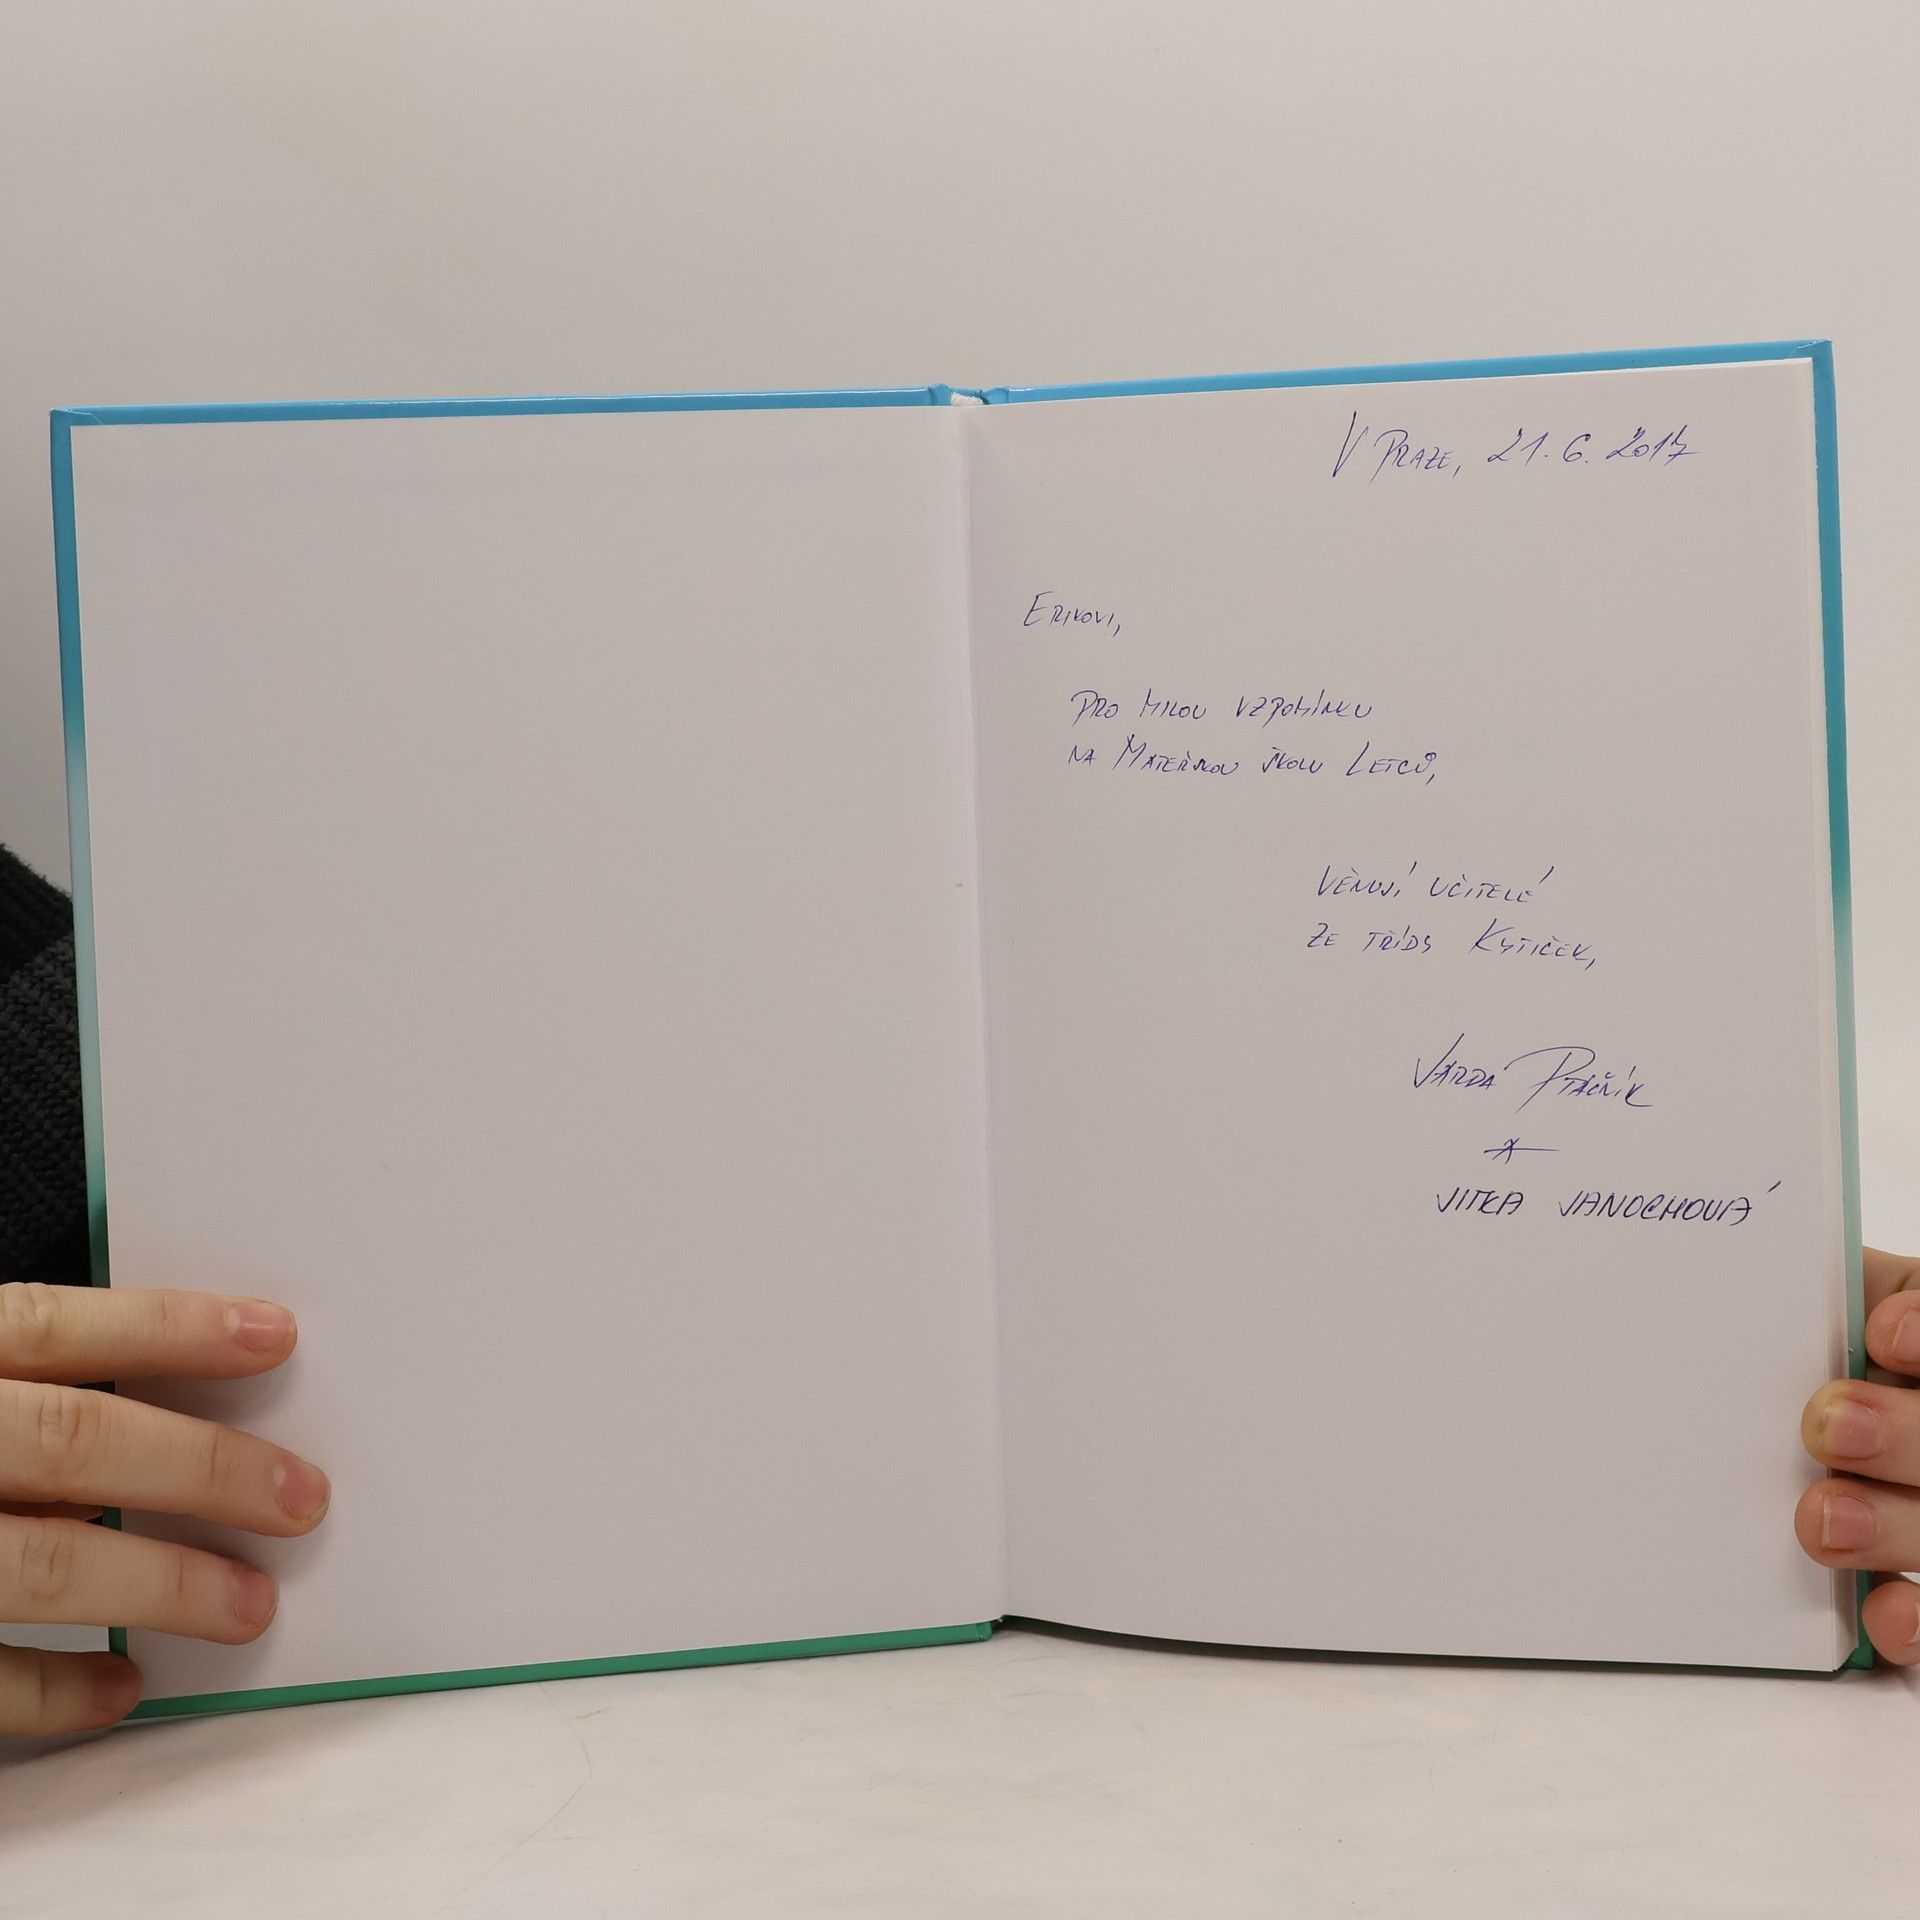 V Praze, 21.6.2017
Erikovi,
pro milou vzpomínku
na Mateřskou školu Letců,
věnují učitelé
ze třídy Kytiček,
Ptáčník
JITKA JANOCHOVÁ